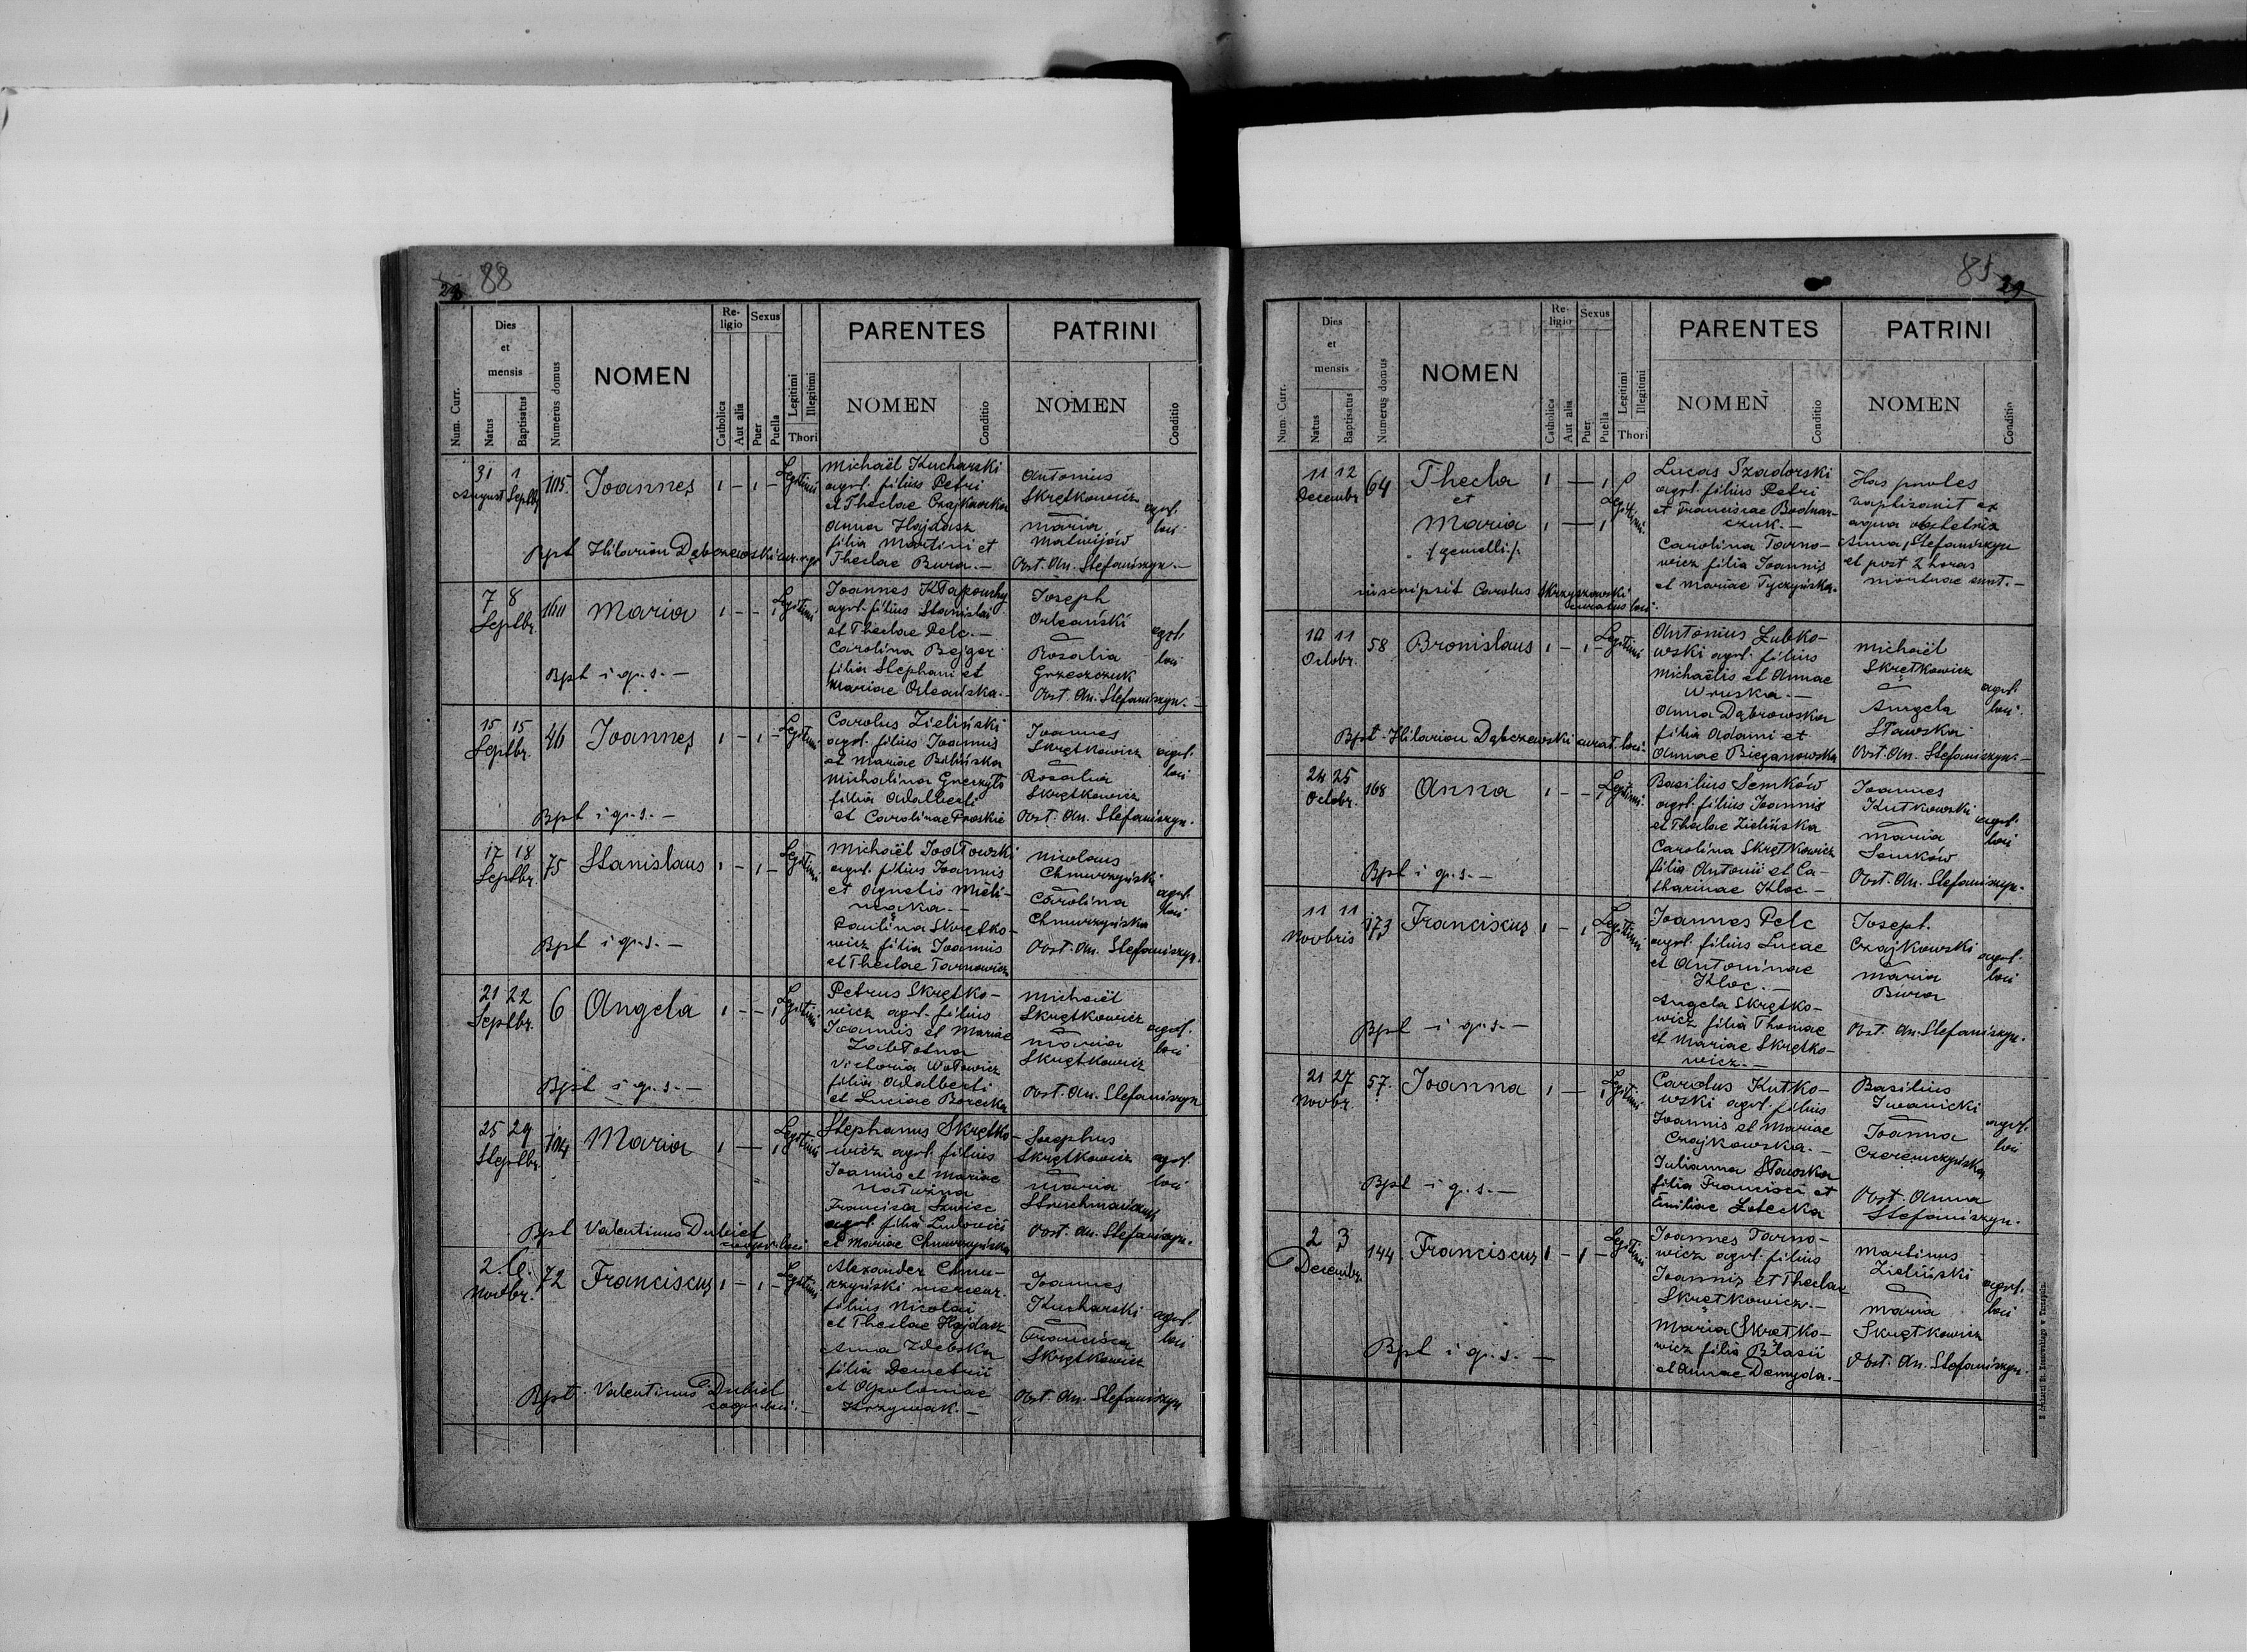 88
Num. Curr.
Dies et mensis
Natus
Baptisatus
Numerus domus
NOMEN
Religio
Catholica
Aut alia
Sexus
Puer
Puella
Legitimi
Illegitimi
Thori
PARENTES
NOMEN
Conditio
PATRINI
NOMEN
Conditio
31 1
August Septbr
105.
Joannes
1 - 1 -
Legitimi
Michaël Kucharski
agr. filius Petri
et Theclae Czajkowska
Anna Hajdasz
filia Martini et
Theclae Bura.-
Antonius
Skrętkowicz
Maria
Matwijów
agr.
loci
Obst. An. Stefaniszyn.-
Bpt Hilarion Dąbczewski
7 8
Septbr.
160
Maria
1 - - 1
Legitimi
Joannes
agr. filius Stanislai
et Theclae Pelc.-
Carolina Bejger
filia Stephani et
Mariae Orleańska.-
Joseph
Orleański
Rosalia
Grzeszczuk
agr.
loci
Obst. An. Stefaniszyn.-
Bpt i q. s.-
15 15
Septbr.
46
Joannes
1 - 1 -
Legitimi
Carolus Zieliński
agr. filius Joannis
et Mariae Bilińska
Michalina
filia Adalberti
et Carolinae
Joannes
Skrętkowicz
Rosalia
Skrętkowicz
agr.
loci
Obst. An. Stefaniszyn.
Bpt i q. s.-
17 18
Septbr.
75
Stanislaus
1 - 1 -
Legitimi
Michaël
agr. filius Joannis
et Agnetis
Paulina Skrętko-
wicz filia Joannis
et Theclae Tarnowicz
Nicolaus
Chmurzyński
Carolina
Chmurzyńska
agr.
loci
Obst. An. Stefaniszyn.
Bpt i q. s.-
21 22
Septbr.
6
Angela
1 - - 1
Legitimi
Petrus Skrętko-
wicz agr. filius
Joannis et Mariae
Zabłotna
Victoria Wołowicz
filia Adalberti
et Luciae Borecka
Michaël
Skrętkowicz
Maria
Skrętkowicz
agr.
loci
Obst. An. Stefaniszyn
Bpt i q. s.-
25 29
Septbr.
104
Maria
1 - 1
Legitimi
Stephanus Skrętko-
wicz agr. filius
Joannis et Mariae
Francisca Szwiec
agr. filia Ludovici
et Mariae Chmurzyńska
Josephus
Skrętkowicz
Maria
agr.
loci
Obst. An. Stefaniszyn.
Bpt Valentinus Dubiel
cooper. loci
2. 6.
Novbr.
72
Franciscus
1 - 1 -
Legitimi
Alexander Chmu-
rzyński mercear.
filius Nicolai
et Theclae Hajdasz
Anna Zdebska
filia Demetrii
et Apoloniae
Krzywak.-
Joannes
Kucharski
Francisca
Skrętkowicz
agr.
loci
Obst. An. Stefaniszyn
Bpt. Valentinus Dubiel
cooper. loci.-
29
Num. Curr.
Dies et mensis
Natus
Baptisatus
Numerus domus
NOMEN
Religio
Catholica
Aut alia
Sexus
Puer
Puella
Legitimi
Illegitimi
Thori
PARENTES
NOMEN
Conditio
PATRINI
NOMEN
Conditio
11 12
Decembr.
64
Thecla
et
Maria
/gemelli/.
1 - 1
1 - 1
Legitimi
Lucas Szadorski
agr. filius Petri
et Franciscae Bodnar-
czuk.-
Carolina Tarno-
wicz filia Joannis
et Mariae Tyczyńska.
Has proles
baptisavit ex
aqua obstetrix
Anna Stefaniszyn
et post 2 horas
mortuae sunt.-
inscripsit Carolus Skrzyszowski
curatus loci.
10 11
Octobr.
58
Bronislaus
1 - 1 -
Legitimi
Antonius Lubko-
wski agr. filius
Michaëlis et Annae
Wruska.-
Anna Dąbrowska
filia Adami et
Annae Bieganowska
Michaël
Skrętkowicz
Angela
Stawska
agr.
loci.
Obst. An. Stefaniszyn.-
Bpt. Hilarion Dąbczewski curat. loci.
24 25
Octobr.
168
Anna
1 - - 1
Legitimi
Basilius Semków
agr. filius Joannis
et Theclae Zielińska
Carolina Skrętkowicz
filia Antonii et Ca-
tharinae Kloc-
Joannes
Kutkowski
Maria
Semków
agr.
loci
Obst. An. Stefaniszyn.
Bpt i q. s.-
11 11
Novbris
173
Franciscus
1 - 1
Legitimi
Joannes Pelc
agr. filius Lucae
et Antoninae
Kloc.-
Angela Skrętko-
wicz filia Thomae
et Mariae Skrętko-
wicz.-
Joseph.
Czajkowski
Maria
Bura
agr.
loci
Obst. An. Stefaniszyn.
Bpt - i q. s.-
21 27
Novbr.
57.
Joanna
1 - 1
Legitimi
Carolus Kutko-
wski agr. filius
Joannis et Mariae
Czajkowska.-
Julianna Stawska
filia Francisci et
Emiliae
Basilius
Iwanicki
Joanna
Czeremczyńska
agr.
loci
Obst. Anna
Stefaniszyn.
Bpt i q. s.-
2 3
Decembr.
144
Franciscus
1 - 1 -
Legitimi
Joannes Tarno-
wicz agr. filius
Joannis et Theclae
Skrętkowicz.-
Maria Skrętko-
wicz filia Blasii
et Annae Demyda.-
Martinus
Zieliński
Maria
Skrętkowicz
agr.
loci
Obst. An. Stefaniszyn.
Bpt i q. s.-